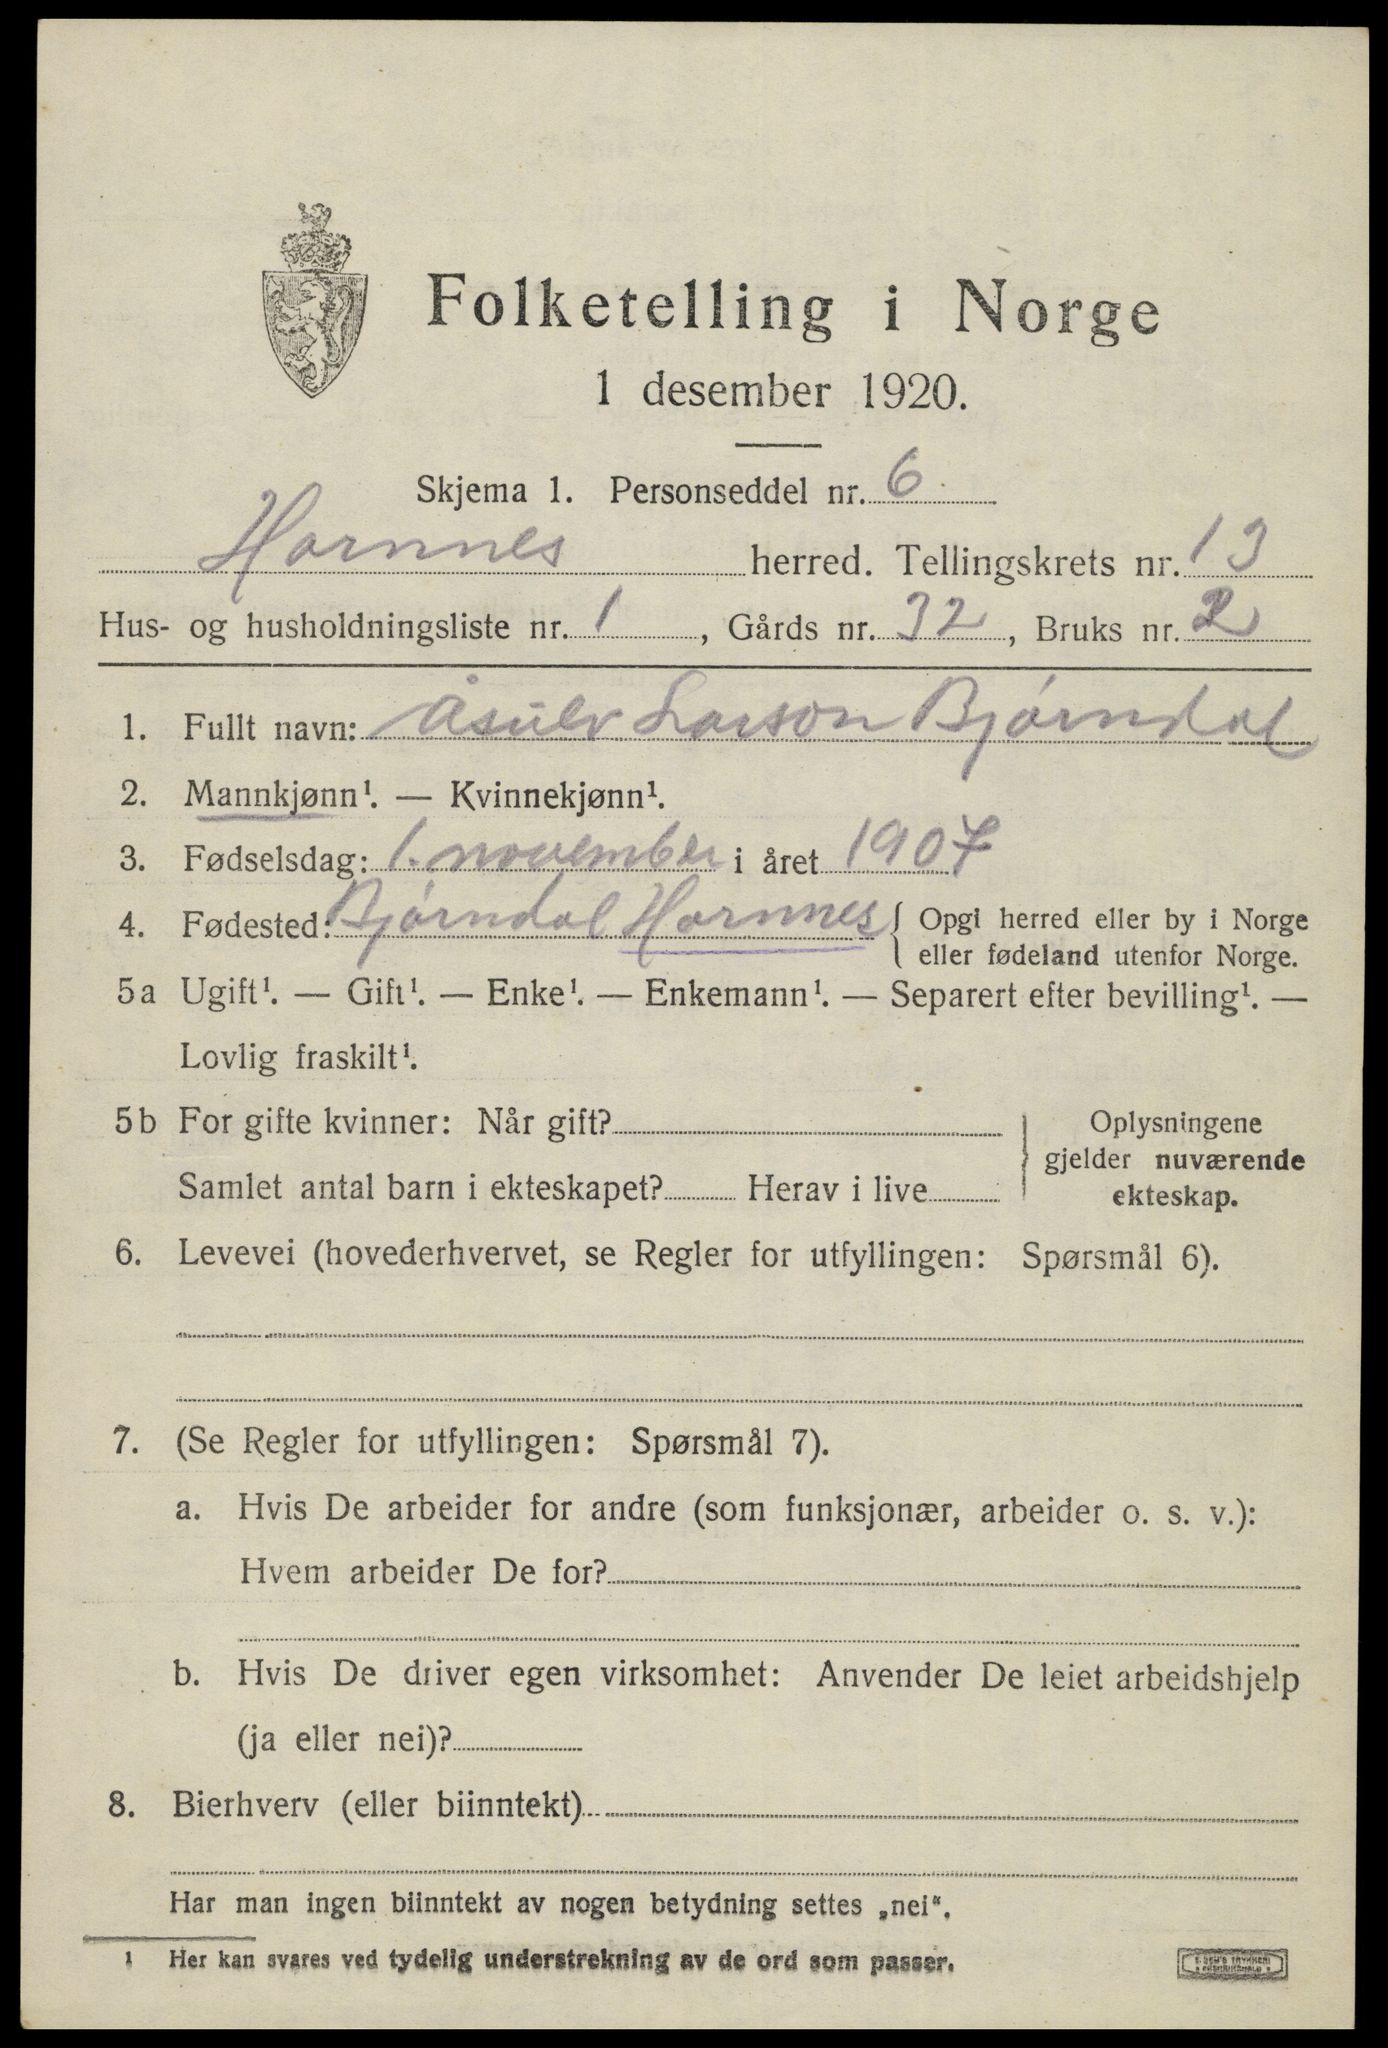 Folketelling i Norge
1 desember 1920.
Skjema 1. Personseddel nr. 6
Hornnes herred. Tellingskrets nr. 13
Hus- og husholdningsliste nr. 1, Gårds nr. 32, Bruks nr. 2
1. Fullt navn: Åsulv Larson Bjørndal
2. Mannkjønn¹. — Kvinnekjønn¹.
3. Fødselsdag: 1. november i året 1907
4. Fødested: Bjørndal Hornnes { Opgi herred eller by i Norge
eller fødeland utenfor Norge.
5a Ugift¹. — Gift¹. — Enke¹. — Enkemann¹. — Separert efter bevilling¹. —
Lovlig fraskilt¹.
5b For gifte kvinner: Når gift?
Samlet antal barn i ekteskapet? Herav i live
} Oplysningene
gjelder nuværende
ekteskap.
6. Levevei (hovederhvervet, se Regler for utfyllingen: Spørsmål 6).
7. (Se Regler for utfyllingen: Spørsmål 7).
a. Hvis De arbeider for andre (som funksjonær, arbeider o. s. v.):
Hvem arbeider De for?
b. Hvis De driver egen virksomhet: Anvender De leiet arbeidshjelp
(ja eller nei)?
8. Bierhverv (eller biinntekt)
Har man ingen biinntekt av nogen betydning settes „nei".
1 Her kan svares ved tydelig understrekning av de ord som passer.